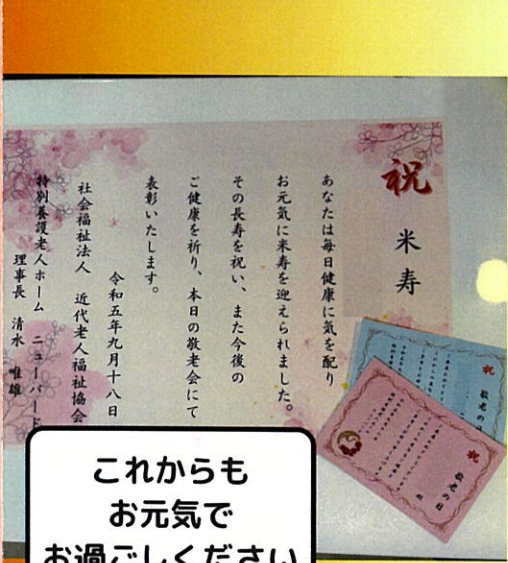 祝
米寿
あなたは毎日健康に気を配り
お元気に米寿を迎えられました。
その長寿を祝い、また今後の
ご健康を祈り、本日の敬老会にて
表彰いたします。
令和五年九月十八日
社会福祉法人 近代老人福祉協会
特別養護老人ホーム ニューバード
理事長 清水 唯雄
祝 敬老の
祝 敬老の日
これからも
お元気で
お過ごしください